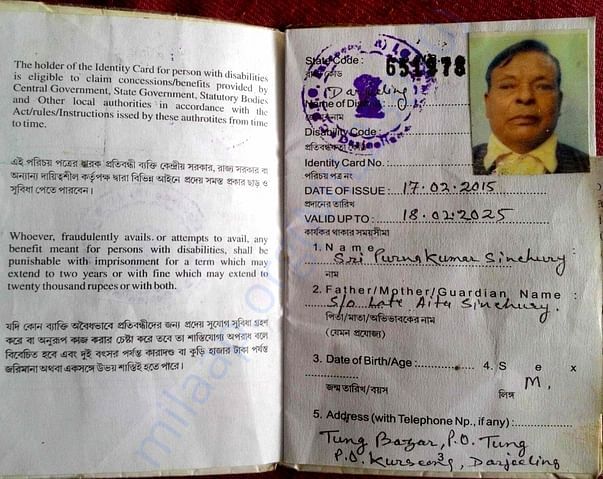 The holder of the Identity Card for person with disabilities
is eligible to claim concessions/benefits provided by
Central Government, State Government, Statutory Bodies
and Other local authorities in accordance with the
Act/rules/Instructions issed by these authrotites from time
to time.
এই পরিচয় পত্রের স্মারক প্রতিবন্ধী ব্যক্তি কেন্দ্রীয় সরকার, রাজ্য সরকার বা
অন্যান্য দায়িত্বশীল কর্তৃপক্ষ দ্বারা বিভিন্ন আইনে প্রদেয় সমস্ত প্রকার ছাড় ও
সুবিধা পেতে পারবেন।
Whoever, fraudulently avails. or attempts to avail, any
benefit meant for persons with disabilities, shall be
punishable with imprisonment for a term which may
extend to two years or with fine which may extend to
twenty thousand rupees or with both.
যদি কোন ব্যাক্তি অবৈধভাবে প্রতিবন্ধীদের জন্য প্রদেয় সুযোগ সুবিধা গ্রহণ
করে বা অনুরূপ কাজ করার চেষ্টা করে তবে তা শাস্তিযোগ্য অপরাধ বলে
বিবেচিত হবে এবং দুই বৎসর পর্যন্ত কারাদণ্ড বা কুড়ি হাজার টাকা পর্যন্ত
জরিমানা অথবা একসঙ্গে উভয় শাস্তিই হতে পারে।
State Code :
কোড
Darjeeling
Name of Dis
Disability Code :
প্রতিবন্ধকতা
Identity Card No. :
পরিচয় পত্র নং
DATE OF ISSUE : 17.02.2015
প্রদানের তারিখ
VALID UP TO : 18.02.2025
কার্যকর থাকার সময়সীমা
1. Name : Sri Purna Kumar Sinchury
নাম
2. Father/Mpther/Guardian Name :
S/o Late Aita Sinchury.
পিতা/মাতা/অভিভাবকের নাম
(যেমন প্রযোজ্য)
3. Date of Birth/Age : 4. Sex
M,
জন্ম তারিখ/বয়স লিঙ্গ
5. Address (with Telephone Np., if any) :
Tung Bazar, P.O. Tung
P.O. Kurseong, Darjeeling
3
milaap.org